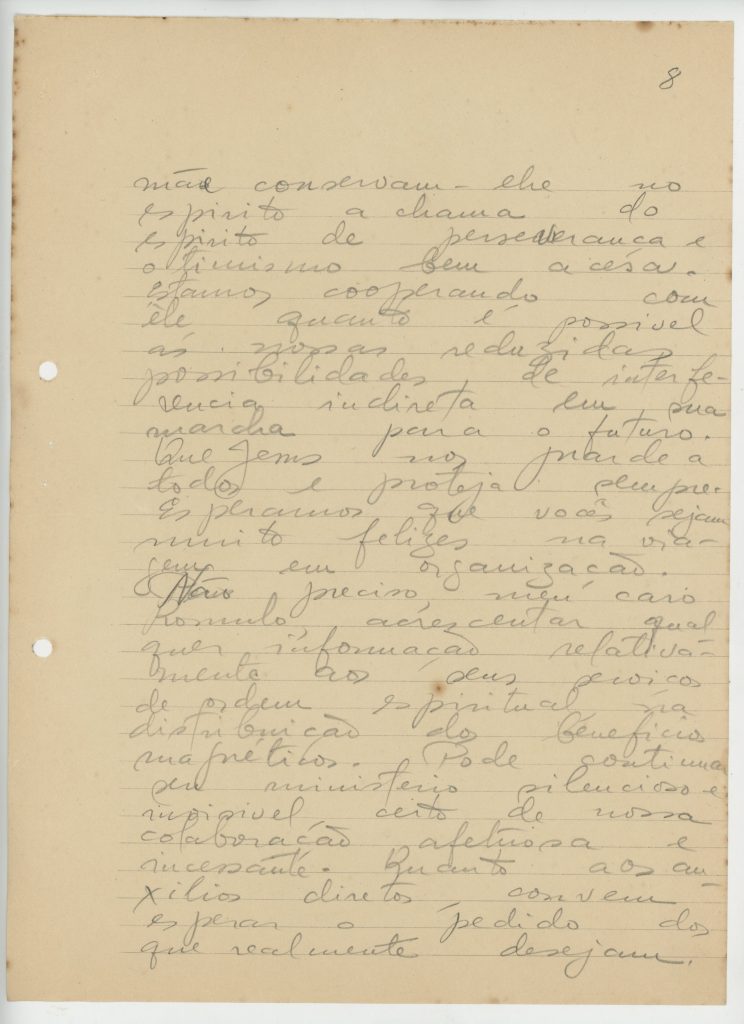 8
mãe conservam-lhe no
espirito a chama do
espirito de perseverança e
otimismo bem acêsa.
Estamos cooperando com
êle quanto é possivel
ás nossas reduzidas
possibilidades de interfe-
rencia indireta em sua
marcha para o futuro.
Que Jesus nos guarde a
todos e proteja sempre.
Esperamos que vocês sejam
muito felizes na via-
gem em organização.
Não preciso, meu caro
Romulo, acrescentar qual
quer informação relativa-
mente aos seus serviços
de ordem espiritual na
distribuição dos beneficios
magnéticos. Pode continuar
seu ministério silencioso e
invisivel, certo de nossa
colaboração afetuosa e
incessante. Quanto aos au-
xilios diretos, convem
esperar o pedido dos
que realmente desejam.